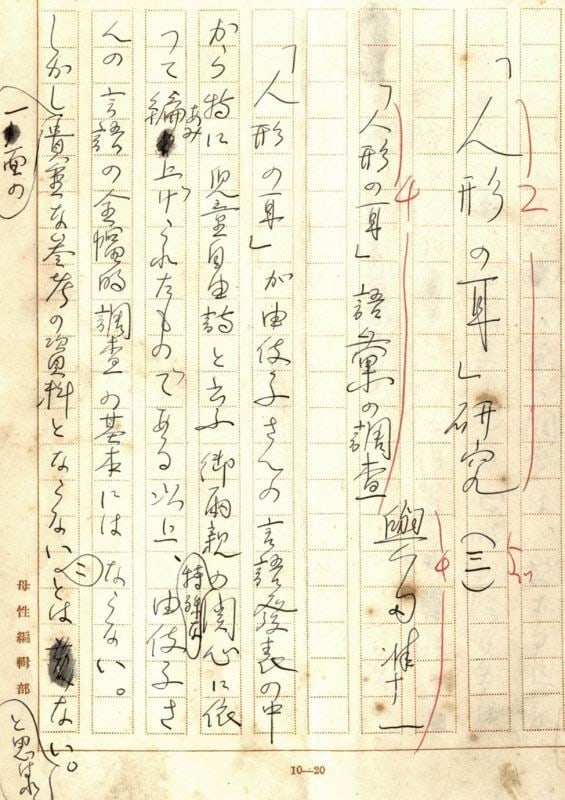 「人形の耳」研究 (三)
2
5
「人形の耳」語彙の調査
4
4
「人形の耳」が由伎子さんの言語発表の中
から特に児童自由詩と云ふ御両親の特殊な関心に依
つて編み上げられたものである以上、由伎子さ
あみ
んの言語の全幅的調査の基本にはならない。
しかし一面の貴重な参考の資料とならないことはない
と思はれ
母性編輯部
10—20